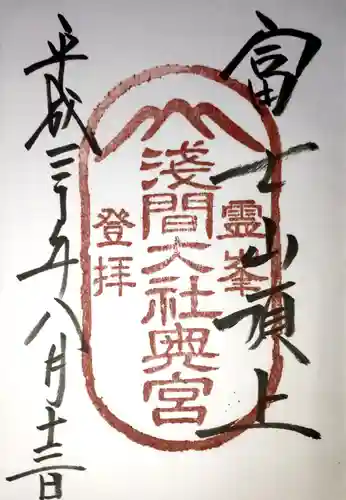 富士山頂上
霊峯
浅間大社奥宮
登拝
平成三十年八月十三日